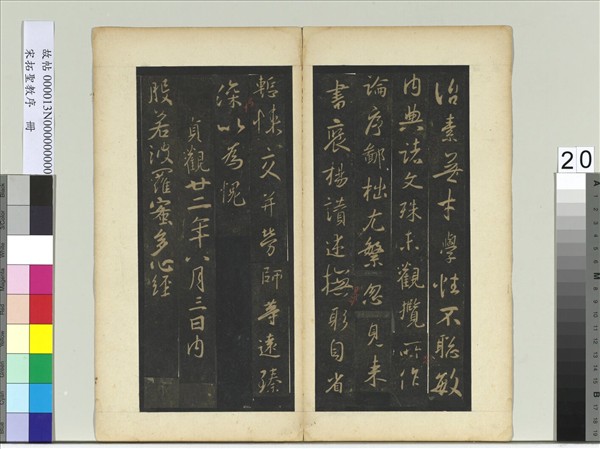 治素無才學性不聰敏
內典諸文殊未觀攬所作
論序鄙拙尤繁忽見来
書褒揚讚述撫躬自省
慙悚交并勞師等遠臻
深以為愧
貞觀廿二年八月三日內
般若波羅蜜多心經
宋拓聖教序 冊
20